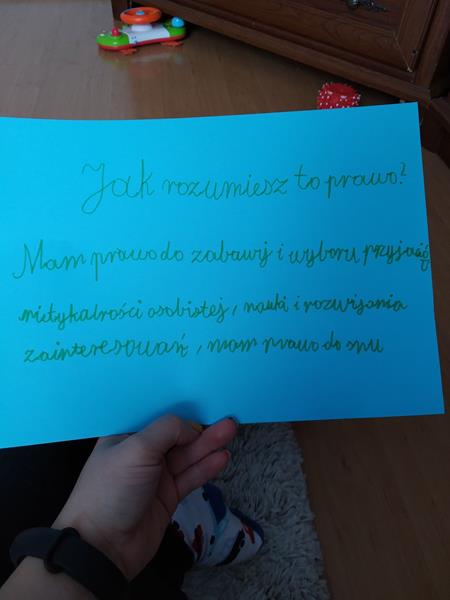 Jak rozumiesz to prawo?
Mam prawo do zabawij i wyboru przyjaciół
nitykalrości osobistej, nauki i rozwijania
zainteresowań, mam prawo do snu